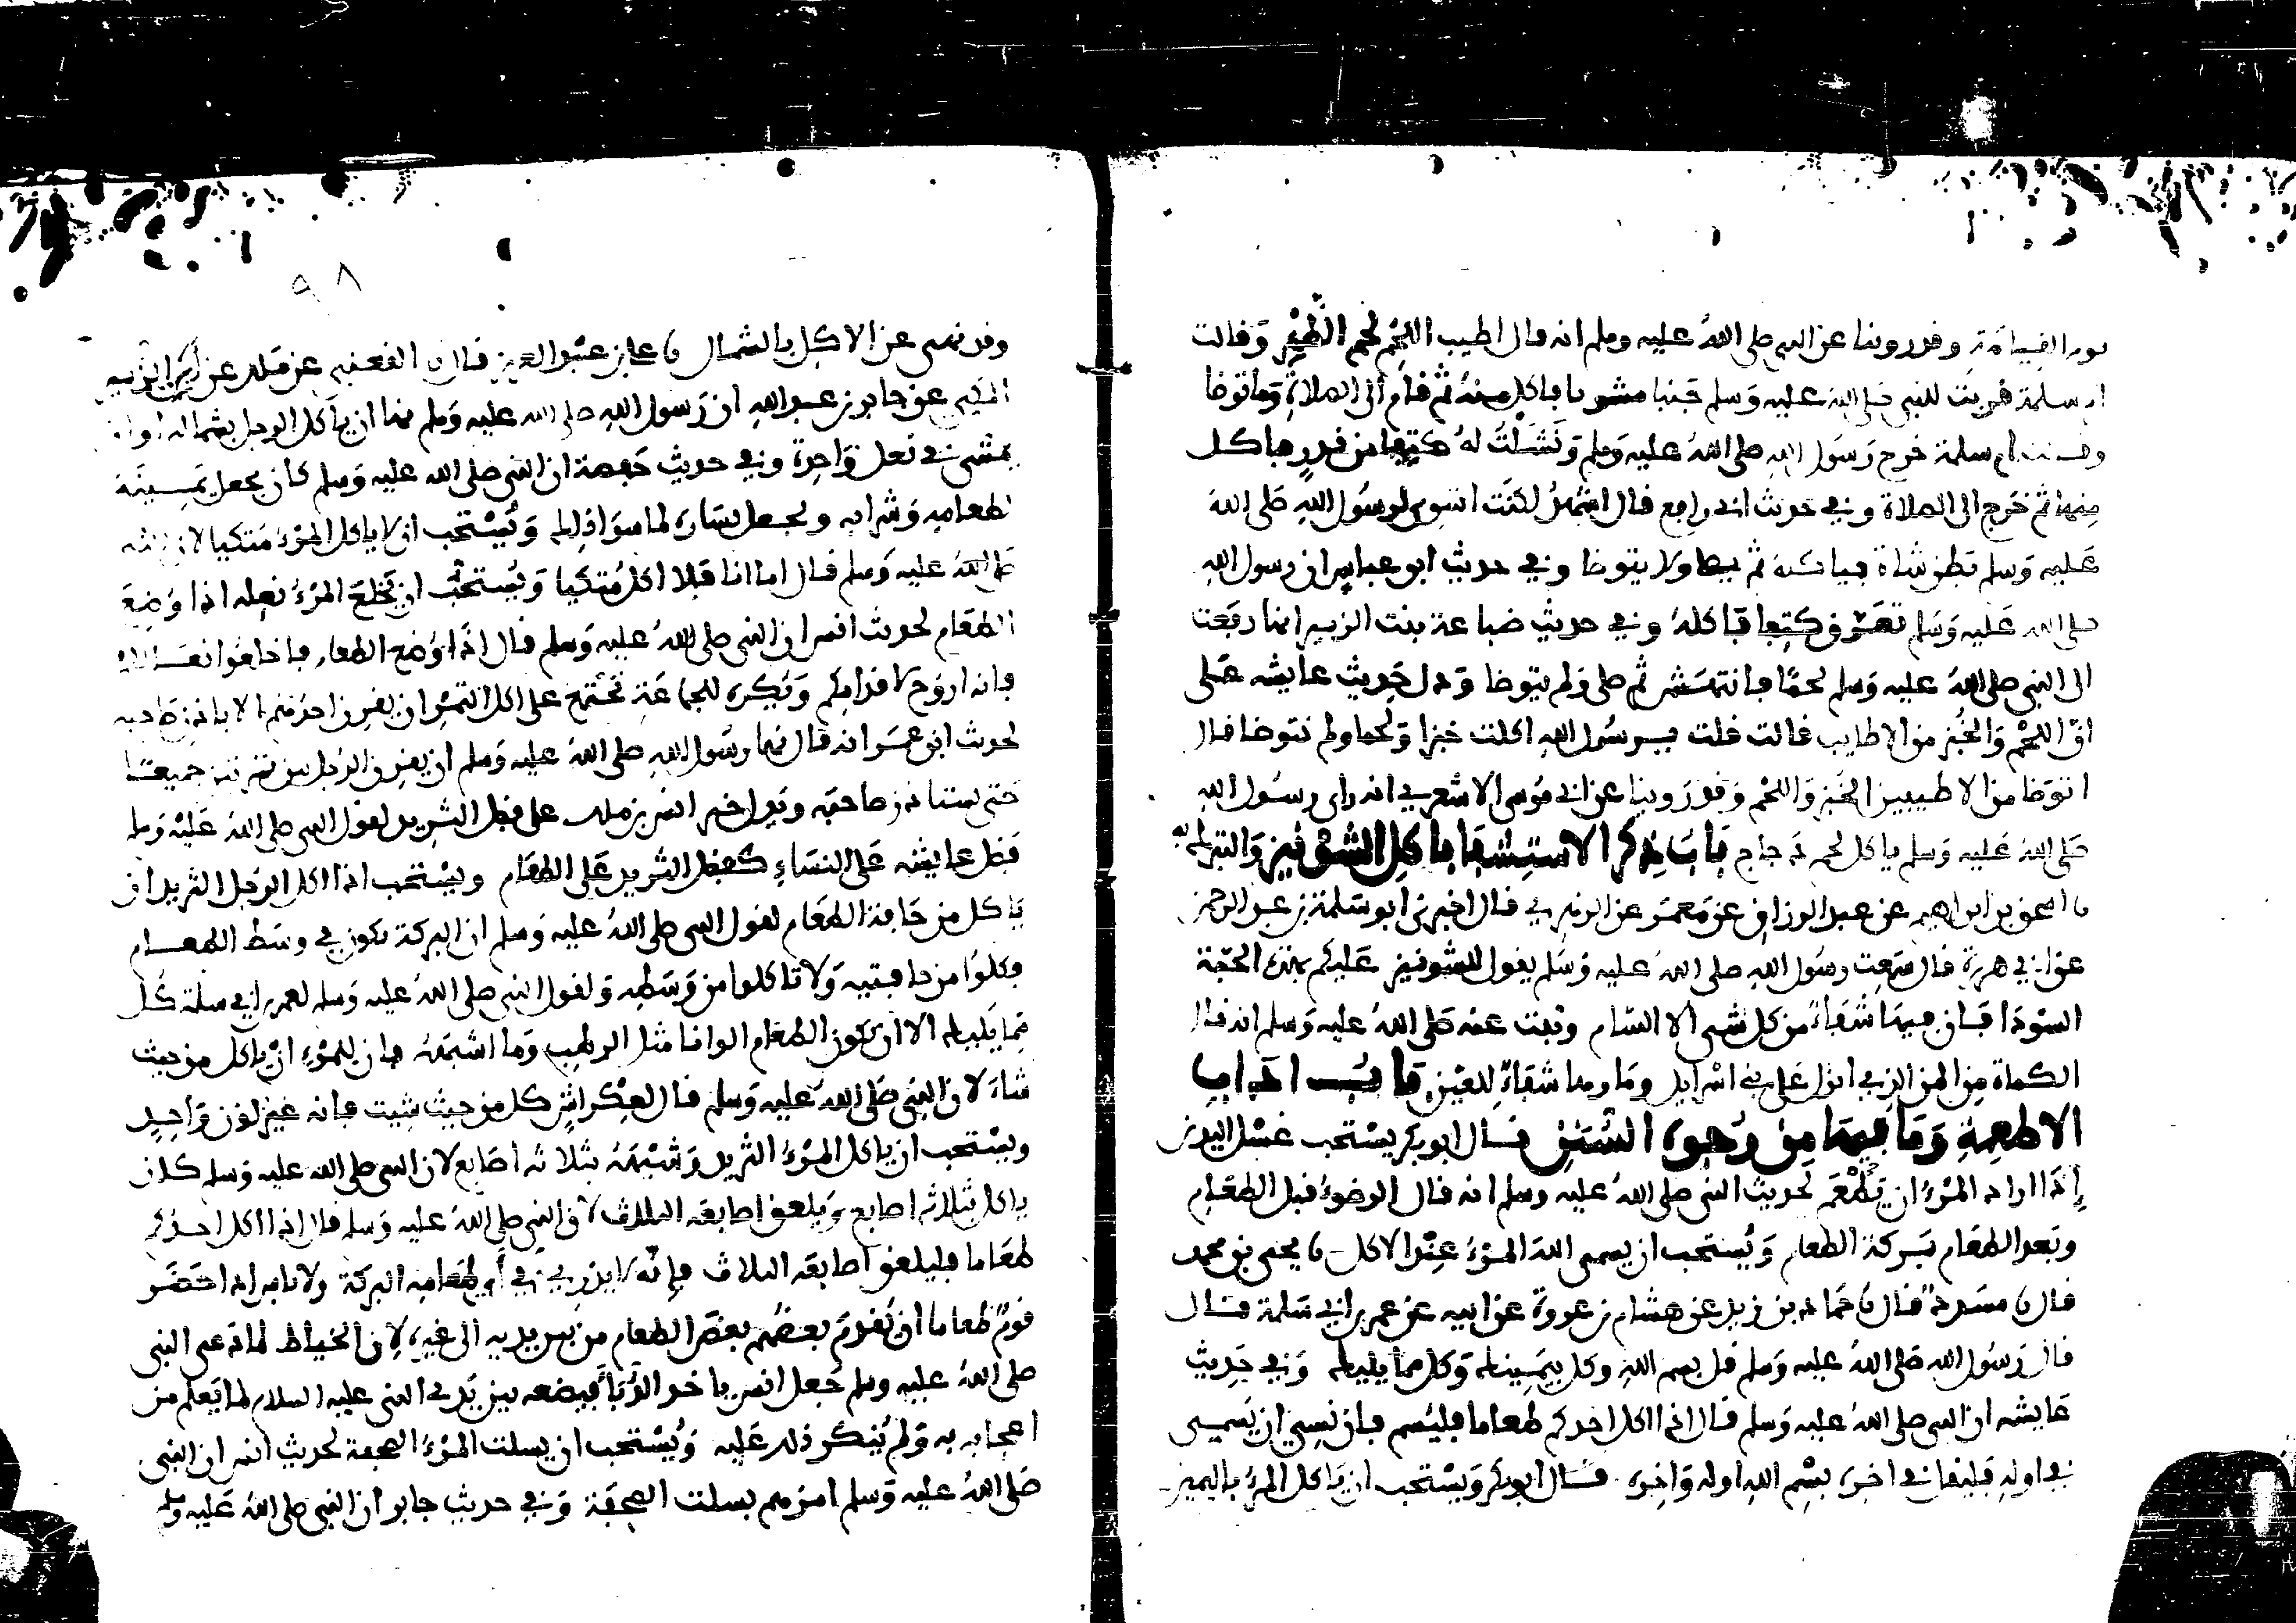 يوم القيامة وقد روينا عن النبي صلى الله عليه وسلم انه قال اطيب اللحم لحم الظهر وقالت
ام سلمة قربت للنبي صلى الله عليه وسلم جنبا مشويا فاكل منه ثم قام الى الصلاة وما توضا
وقالت ام سلمة خرج رسول الله صلى الله عليه وسلم ونشلت له كتفا من قدر فاكل
منها ثم خرج الى الصلاة وفي حديث ابي رافع قال اشهد لكنت اشوي لرسول الله صلى الله
عليه وسلم بطن شاة فياكله ثم يصلي ولا يتوضا وفي حديث ابن عباس ان رسول الله
صلى الله عليه وسلم تعرق كتفا فاكله وفي حديث ضباعة بنت الزبير انها دفعت
الى النبي صلى الله عليه وسلم لحما فانتهش ثم صلى ولم يتوضا ودل حديث عايشه على
ان اللحم والخبز من الاطايب قالت قلت يرسول الله اكلت خبزا ولحما ولم تتوضا قال
اتوضا من الاطيبين الخبز واللحم وقد روينا عن ابي موسى الاشعري انه راى رسول الله
صلى الله عليه وسلم ياكل لحم دجاج باب ذكر الاستشفا باكل الشونيز والتبر به
نا اسحق بن ابراهيم عن عبد الرزاق عن معمر عن الزهري قال اخبرني ابو سلمة بن عبد الرحمن
عن ابي هريرة قال سمعت رسول الله صلى الله عليه وسلم يقول للشونيز عليكم بهذه الحبة
السودا فان فيها شفاء من كل شي الا السام وثبت عنه صلى الله عليه وسلم انه قال
الكماة من المن الذي انزل على بني اسرايل وماوها شفاء للعين باب اداب
الاطعمة وما فيها من وجوه السنن قال ابو بكر يستحب غسل اليدين
اذا اراد المرء ان يطعم لحديث النبي صلى الله عليه وسلم انه قال الوضوء قبل الطعام
وبعد الطعام بركة الطعام ويستحب ان يسمي الله المرء عند الاكل نا يحيى بن محمد
قال نا مسدد قال نا حماد بن زيد عن هشام بن عروة عن ابيه عن عمر بن ابي سلمة قال
قال رسول الله صلى الله عليه وسلم قل بسم الله وكل بيمينك وكل مما يليك وفي حديث
عايشه ان النبي صلى الله عليه وسلم قال اذا اكل احدكم طعاما فليسم فان نسي ان يسمي
في اوله فليقل في اخره بسم الله اوله واخره قال ابو بكر ويستحب ان ياكل المرء باليمين
٩٨
وقد نهى عن الاكل بالشمال نا علي بن عبد العزيز قال نا القعنبي عن ملك عن ابي الزبير
المكي عن جابر بن عبد الله ان رسول الله صلى الله عليه وسلم نها ان ياكل الرجل بشماله او ان
يمشي في نعل واحدة وفي حديث حفصة ان النبي صلى الله عليه وسلم كان يجعل يمينه
لطعامه وشرابه ويجعل يساره لما سوا ذلك ويستحب ان لا ياكل المرء متكيا لان
صلى الله عليه وسلم قال اما انا فلا اكل متكيا ويستحب ان يخلع المرء نعله اذا وضع
الطعام لحديث انس ان النبي صلى الله عليه وسلم قال اذا وضع الطعام فاخلعوا نعالكم
فانه اروح لاقدامكم ويكره للجماعة تجتمع على اكل التمر ان يقرن احدهم الا باذن صاحبه
لحديث ابن عمر انه قال نها رسول الله صلى الله عليه وسلم ان يقرن الرجل بين تمرتين جميعا
حتى يستاذن صاحبه ويدل خبر انس بن ملك على فضل الثريد لقول النبي صلى الله عليه وسلم
فضل عايشه على النساء كفضل الثريد على الطعام ويستحب اذا اكل الرجل الثريد ان
ياكل من حافة الطعام لقول النبي صلى الله عليه وسلم ان البركة تكون في وسط الطعام
فكلوا من حافتيه ولا تاكلوا من وسطه ولقول النبي صلى الله عليه وسلم لعمر بن ابي سلمة كل
مما يليك الا ان يكون الطعام الوانا مثل الرطب وما اشبهه فان للمرء ان ياكل من حيث
شاء لان النبي صلى الله عليه وسلم قال لعكراش كل من حيث شيت فانه غير لون واحد
ويستحب ان ياكل المرء الثريد وشبهه بثلاثه اصابع لان النبي صلى الله عليه وسلم كان
ياكل بثلاثه اصابع ويلعق اصابعه الثلاث لان النبي صلى الله عليه وسلم قال اذا اكل احدكم
طعاما فليلعق اصابعه الثلاث فانه لا يدري في اي طعامه البركة ولا باس اذا حضر
قوم طعاما ان يقدم بعضهم بعض الطعام من بين يديه الى غيره لان الخياط لما دعى النبي
صلى الله عليه وسلم جعل انس ياخذ الدبا فيضعه بين يدي النبي عليه السلام لما يعلم من
اعجابه به ولم ينكر ذلك عليه ويستحب ان يسلت المرء الصحفة لحديث انس ان النبي
صلى الله عليه وسلم امرهم بسلت الصحفة وفي حديث جابر ان النبي صلى الله عليه وسلم